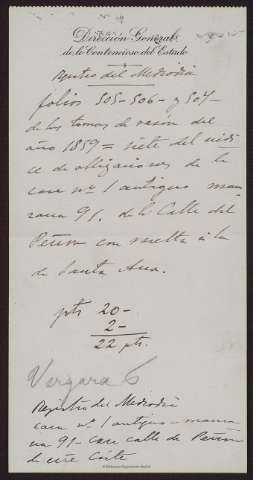 Dirección General
de lo Contencioso del Estado
Registro del Mediodía
folios 505-506- y 507-
de los tomos de razón del
año 1859 = siete del indi
ce de obligaciones de la
casa nº 1 antiguo man
zana 91. de la Calle del
Peñon con vuelta á la
de Santa Ana.
pts 20-
2-
22 pts.
Vergara 6
Registro del Mediodía
casa nº 1 antiguo - manza
na 91 - calle de Peñon
de esta Corte